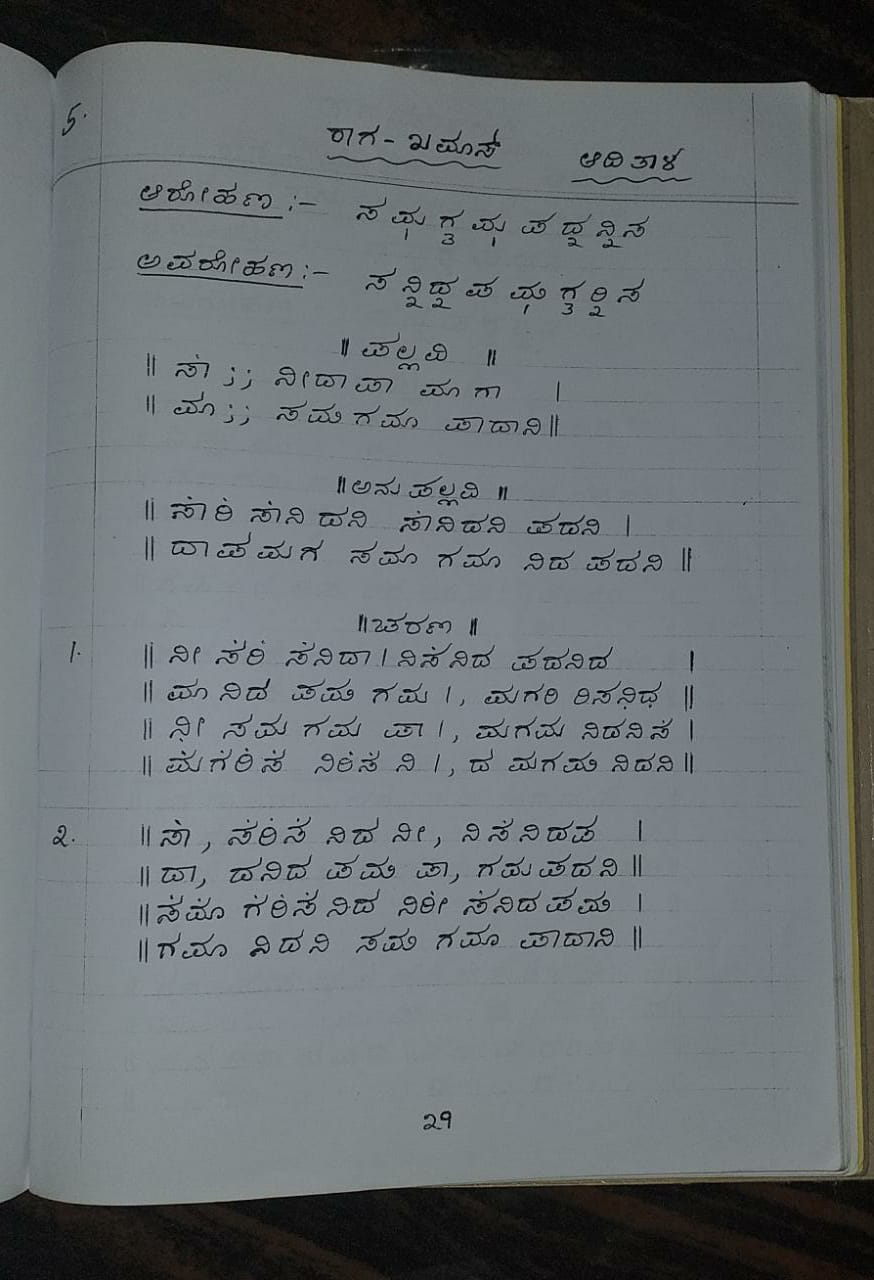 5.
ರಾಗ - ಖಮಾಸ್ ಆದಿ ತಾಳ
ಆರೋಹಣ :- ಸ ಮ₁ ಗ₃ ಮ₁ ಪ ದ₂ ನಿ₂ ಸ
ಅವರೋಹಣ :- ಸ ನಿ₂ ದ₂ ಪ ಮ₁ ಗ₃ ರಿ₂ ಸ
|| ಪಲ್ಲವಿ ||
|| ಸಾ̇ ; ; ನೀದಾಪಾ ಮಾ ಗಾ |
|| ಮಾ ; ; ಸಮ ಗಮಾ ಪಾದಾನಿ ||
|| ಅನು ಪಲ್ಲವಿ ||
|| ಸಾ̇ರಿ̇ ಸಾ̇ನಿ ದನಿ ಸಾ̇ನಿದನಿ ಪದನಿ |
|| ದಾಪಮಗ ಸಮಾ ಗಮಾ ನಿದ ಪದನಿ ||
|| ಚರಣ ||
1. || ನೀ ಸ̇ರಿ̇ ಸ̇ನಿದಾ । ನಿಸ̇ನಿದ ಪದನಿದ |
|| ಮಾ ನಿದ ಪಮ ಗಮ ।, ಮಗರಿ ರಿಸನಿ̣ಧ̣ ||
|| ನೀ̣ ಸಮ ಗಮ ಪಾ ।, ಮಗಮ ನಿದನಿಸ̇ |
|| ಮ̇ಗ̇ರಿ̇ಸ̇ ನಿರಿ̇ಸ̇ ನಿ ।, ದ ಮಗಮ ನಿದನಿ ||
2. || ಸಾ̇ , ಸ̇ರಿ̇ಸ̇ ನಿದ ನೀ, ನಿಸ̇ನಿದಪ |
|| ದಾ, ದನಿದ ಪಮ ಪಾ, ಗಮಪದನಿ ||
|| ಸ̇ಮಾ̇ ಗ̇ರಿ̇ಸ̇ ನಿದ ನಿರೀ̇ ಸ̇ನಿದಪಮ |
|| ಗಮಾ ನಿದನಿ ಸಮ ಗಮಾ ಪಾದಾನಿ ||
29